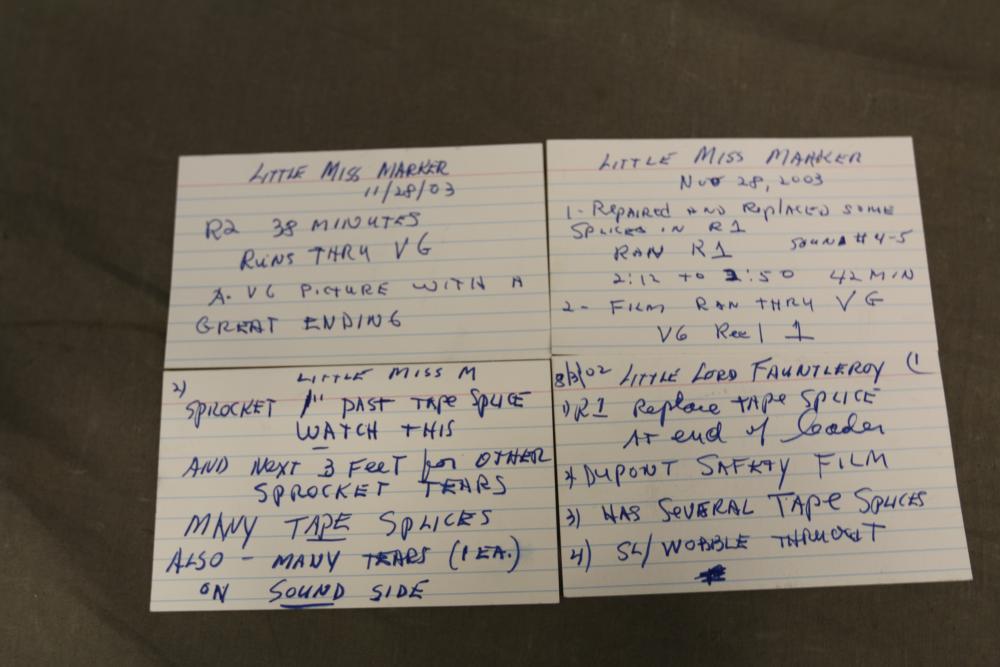 LITTLE MISS MARKER
11/28/03
R2 38 MINUTES
RUNS THRU VG
A. VG PICTURE WITH A
GREAT ENDING
LITTLE MISS MARKER
NOV 28, 2003
1- REPAIRED AND REPLACED SOME
SPLICES IN R1
RAN R1 SOUND # 4-5
2:12 TO 2:50 42 MIN
2- FILM RAN THRU VG
VG Reel 1
2) LITTLE MISS M
SPROCKET 1" PAST TAPE SPLICE
WATCH THIS
AND NEXT 3 FEET for OTHER
SPROCKET TEARS
MANY TAPE SPLICES
ALSO - MANY TEARS (1 EA.)
ON SOUND SIDE
8/3/02 LITTLE LORD FAUNTLEROY (1
1) R1 Replace TAPE SPLICE
AT end of leader
2) DUPONT SAFETY FILM
3) HAS SEVERAL TAPE SPLICES
4) SL/WOBBLE THRUOUT